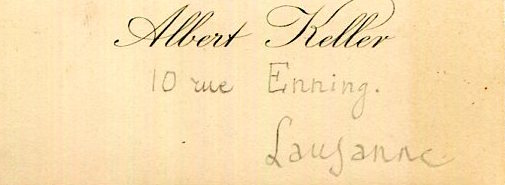 Albert Keller
10 rue Enning.
Lausanne